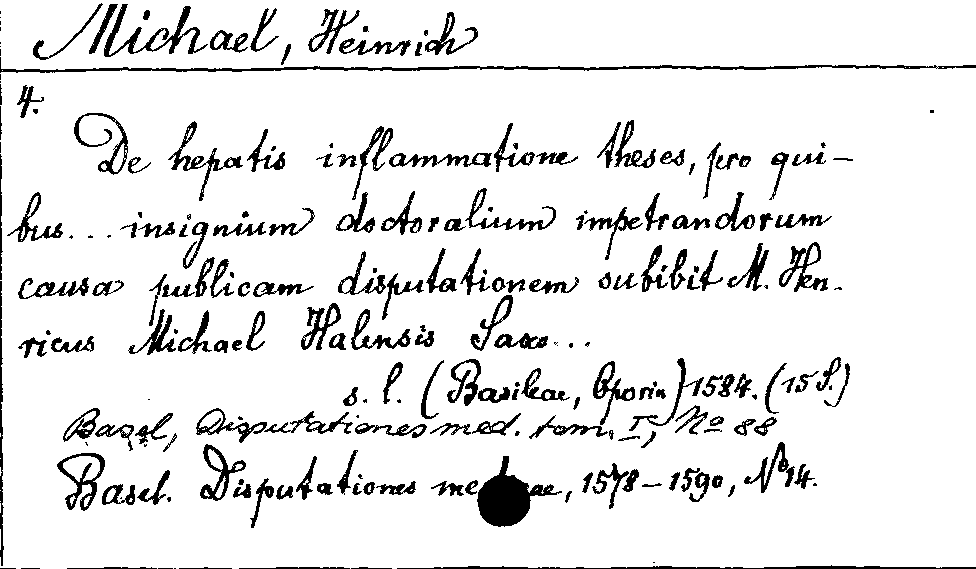 Michael, Heinrich
4.
De hepatis inflammatione theses, pro qui-
bus... insignium doctoralium impetrandorum
causa publicam disputationem subibit M. Hen-
ricus Michael Halensis Saxo...
s. l. (Basileae, Oporin) 1584. (15 S.)
Basel, Disputationes med. tom. I, No 88
Basel. Disputationes me cae, 1578-1590, No 14.